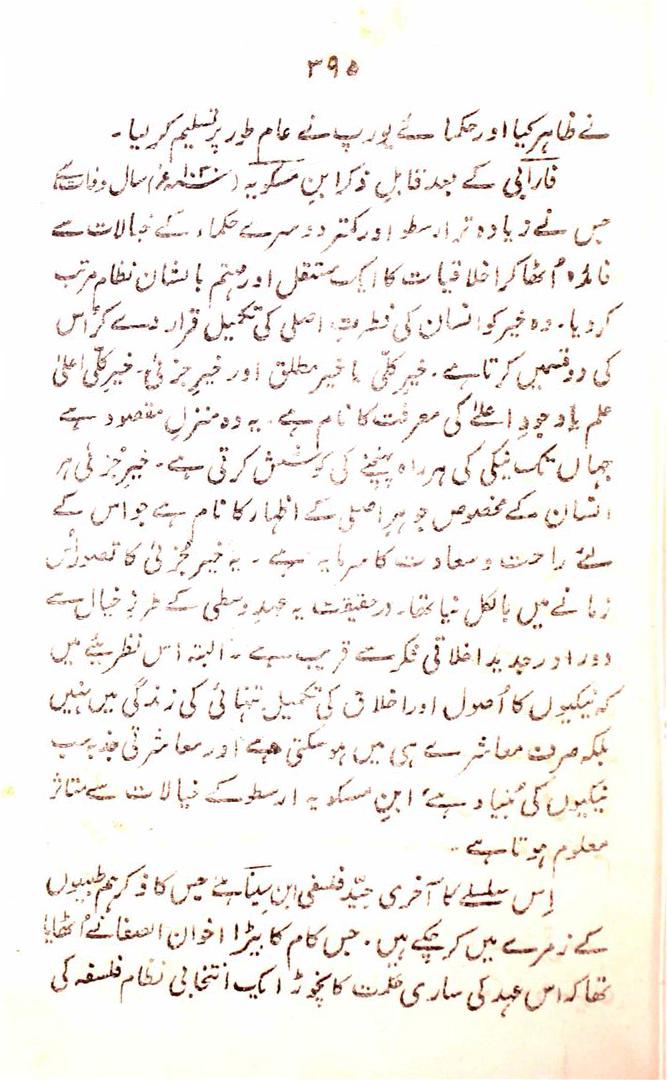 ۳۹۵
نے ظاہر کیا اور حکمائے یورپ نے عام طور پر تسلیم کر لیا۔
فارابی کے بعد قابل ذکر ابن مسکویہ (۱۰۳۰ء سال وفات) ہے
جس نے زیادہ تر ارسطو اور کمتر دوسرے حکماء کے خیالات سے
فائدہ اُٹھا کر اخلاقیات کا ایک مستقل اور مہتم بالشان نظام مرتب
کر دیا۔ وہ خیر کو انسان کی فطرتِ اصلی کی تکمیل قرار دے کر اُس
کی دو قسمیں کرتا ہے۔ خیرِ کلّی یا خیر مطلق اور خیرِ جزئی۔ خیرِ کلّی اعلیٰ
علم یا وجودِ اعلےٰ کی معرفت کا نام ہے۔ یہ وہ منزلِ مقصود ہے
جہاں تک نیکی کی ہر راہ پہنچنے کی کوشش کرتی ہے۔ خیرِ جُزئی ہر
انسان کے مخصوص جوہرِ اصلی کے اظہار کا نام ہے جو اس کے
لئے راحت و سعادت کا سرمایہ ہے۔ یہ خیرِ جُزئی کا تصور اُس
زمانے میں بالکل نیا تھا۔ درحقیقت یہ عہدِ وسطیٰ کے طرزِ خیال سے
دور اور جدید اخلاقی فکر سے قریب ہے۔ البتہ اس نظریئے میں
کہ نیکیوں کا اُصول اور اخلاق کی تکمیل تنہائی کی زندگی میں نہیں
بلکہ صرف معاشرے ہی میں ہو سکتی ہے اور معاشرتی جذبہ سب
نیکیوں کی بُنیاد ہے، ابنِ مسکویہ ارسطو کے خیالات سے متاثر
معلوم ہوتا ہے۔
اِس سلسلے کا آخری جیّد فلسفی ابن سینا ہے جس کا ذکر ہم طبیبوں
کے زمرے میں کر چکے ہیں۔ جس کام کا بیڑا اخوان الصفا نے اُٹھایا
تھا کہ اس عہد کی ساری حکمت کا نچوڑ ایک انتخابی نظام فلسفہ کی